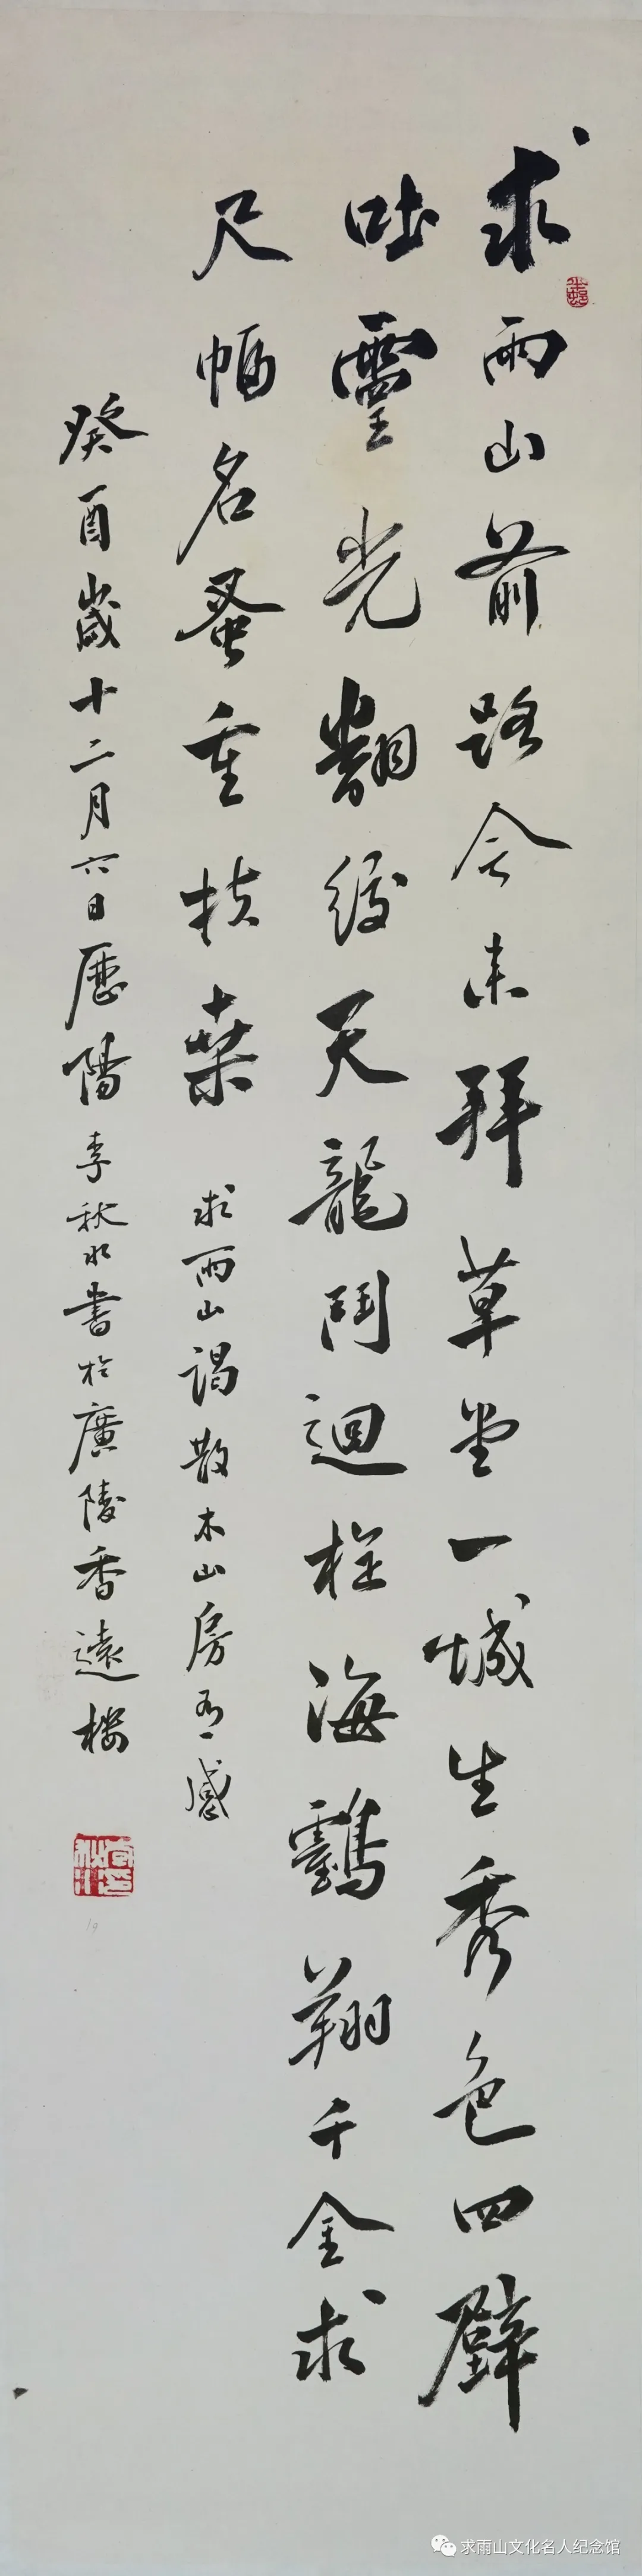 求雨山前路今来拜草堂一城生秀色四壁
吐靈光翻綬天龍鬥迴柱海鸖翔千金求
尺幅名蚤重扶桒 求雨山謁散木山房有感
癸酉歲十二月六日歷陽李秋水書於廣陵香遠楼
求雨山文化名人纪念馆